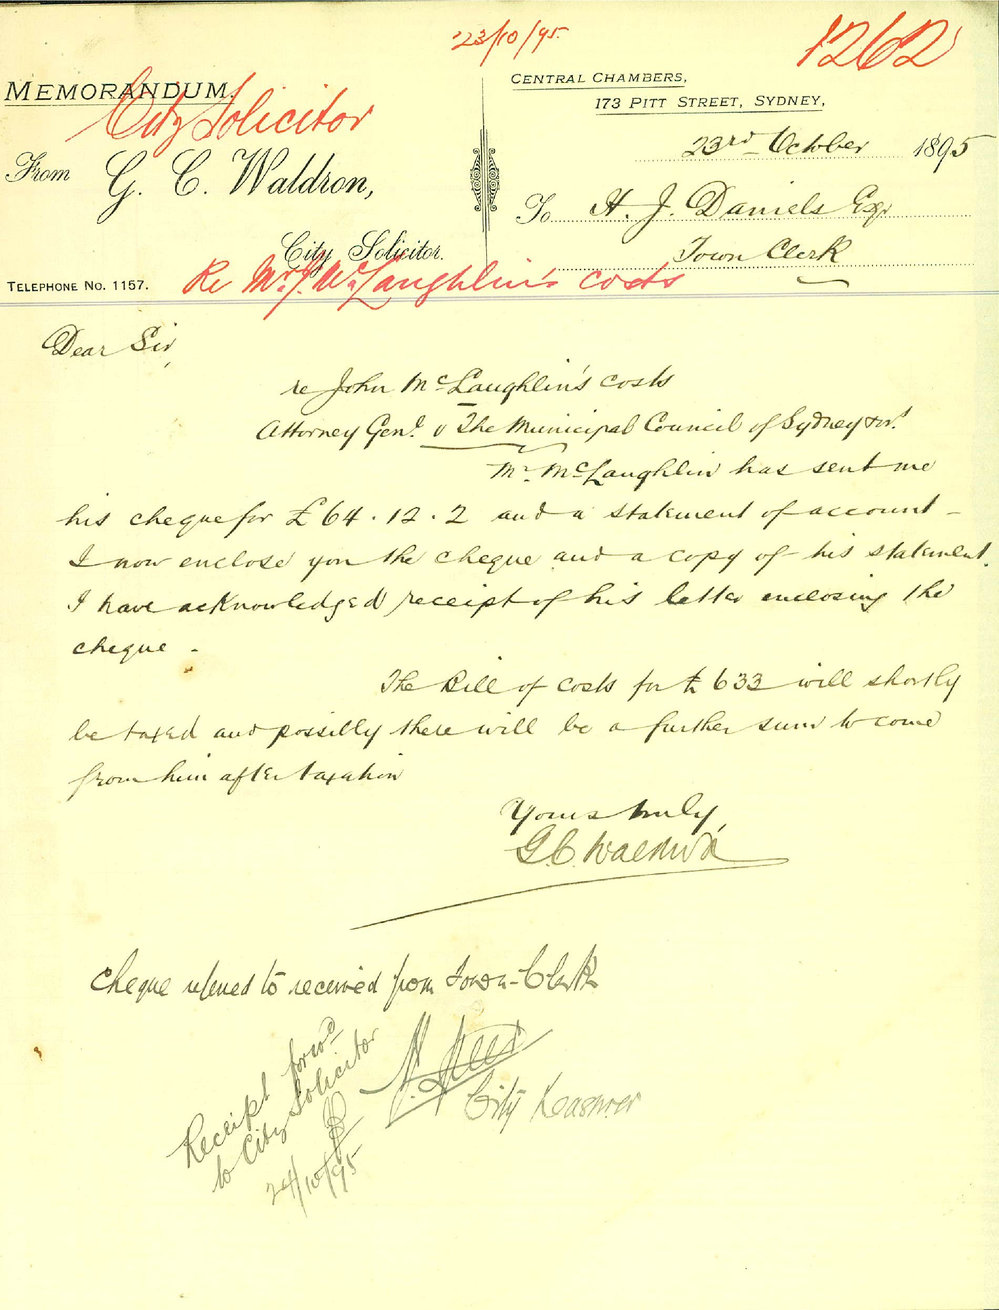 23/10/95
1262
MEMORANDUM.
City Solicitor
From G. C. Waldron,
City Solicitor.
TELEPHONE NO. 1157.
CENTRAL CHAMBERS,
173 PITT STREET, SYDNEY,
23rd October 1895
To H. J. Daniels Esqr
Town Clerk
Re Mr J. McLaughlin's costs
Dear Sir,
re John McLaughlin's costs
Attorney Genl. v The Municipal Council of Sydney & anr.
Mr. McLaughlin has sent me
his cheque for £64.12.2 and a statement of account -
I now enclose you the cheque and a copy of his statement.
I have acknowledged receipt of his letter enclosing the
cheque -
The Bill of costs for £633 will shortly
be taxed and possibly there will be a further sum to come
from him after taxation
Yours truly,
G.C. Waldron
Cheque referred to received from Town-Clerk
City Treasurer
Receipt forwd
to City Solicitor
24/10/95